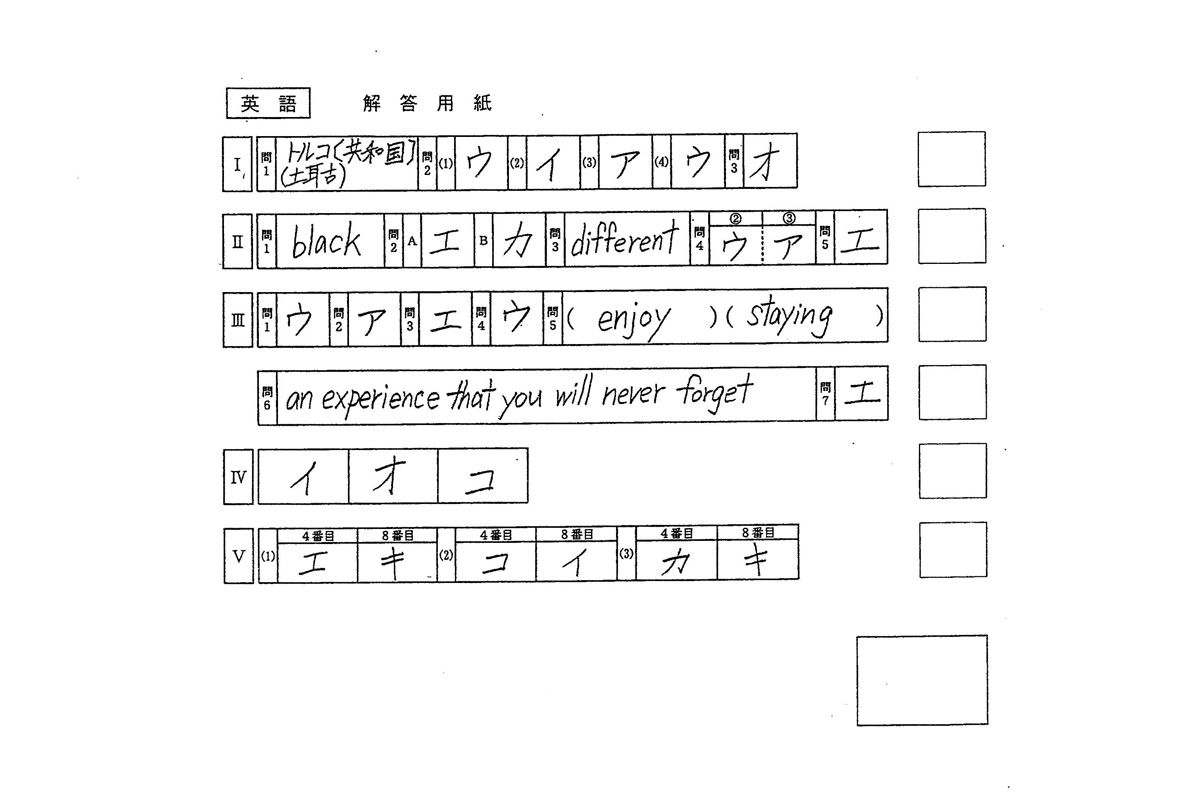 英語 解答用紙
Ⅰ 問1 トルコ〔共和国〕(土耳古) 問2 (1) ウ (2) イ (3) ア (4) ウ 問3 オ
Ⅱ 問1 black 問2 A エ B カ 問3 different 問4 ② ウ ③ ア 問5 エ
Ⅲ 問1 ウ 問2 ア 問3 エ 問4 ウ 問5 ( enjoy )( staying )
問6 an experience that you will never forget 問7 エ
Ⅳ イ オ コ
Ⅴ (1) 4番目 エ 8番目 キ (2) 4番目 コ 8番目 イ (3) 4番目 カ 8番目 キ